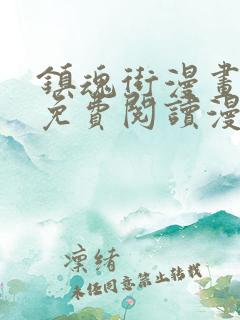 鎮魂街漫畫
免費閱讀漫
凜緒
未经同意禁止转载